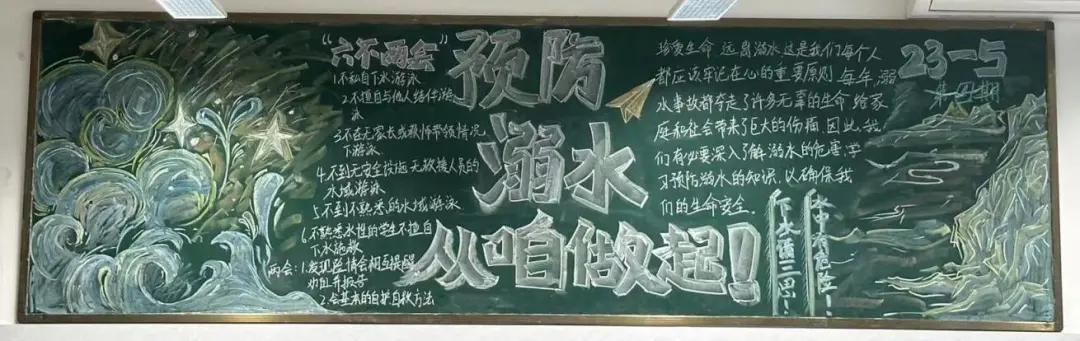 “六不两会”
1.不私自下水游泳
2.不擅自与他人结伴游
泳
3.不在无家长或教师带领情况
下游泳
4.不到无安全设施无救援人员的
水域游泳
5.不到不熟悉的水域游泳
6.不熟悉水性的学生不擅自
下水施救
两会：1.发现险情会相互提醒
劝阻并报告
2.会基本的自护自救方法
预防
溺水
从咱做起！
珍爱生命 远离溺水 这是我们每个人
都应该牢记在心的重要原则 每年,溺
水事故都夺走了许多无辜的生命 给家
庭和社会带来了巨大的伤痛 因此,我
们有必要深入了解溺水的危害,学
习预防溺水的知识,以确保我
们的生命安全.
23-5
第四期
水中有危险！
下水请三思！